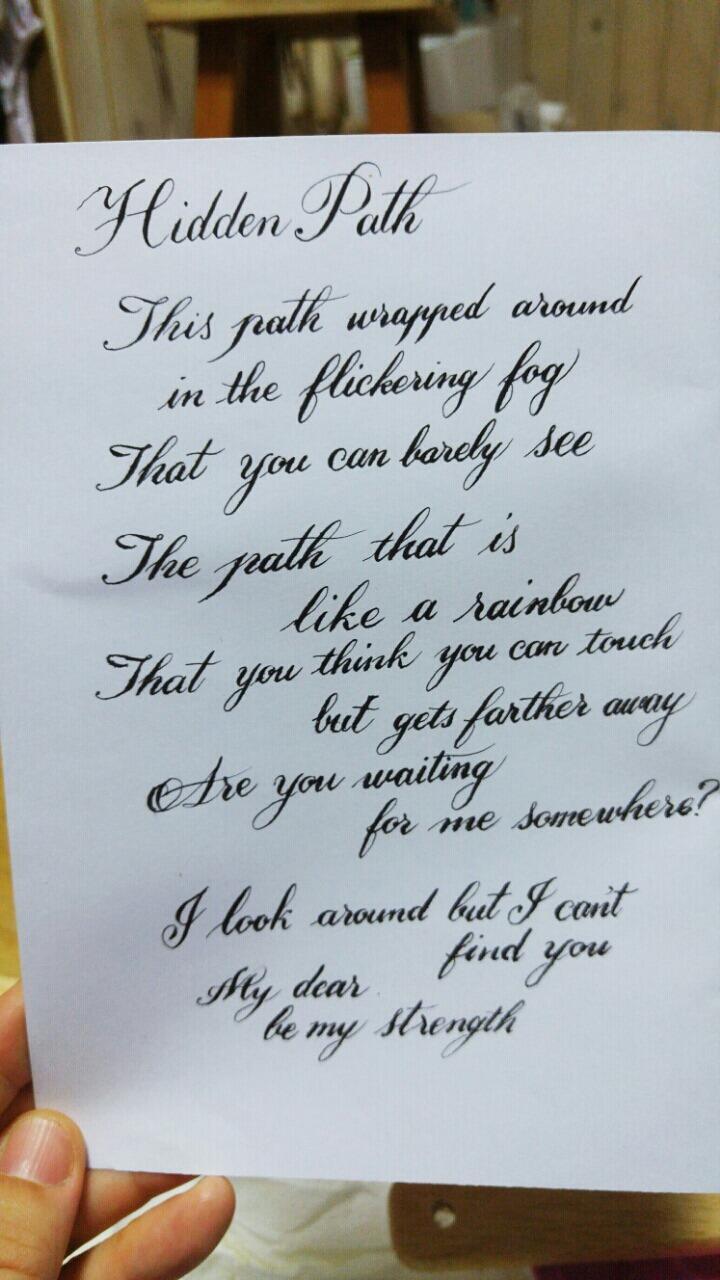 Hidden Path
This path wrapped around
in the flickering fog
That you can barely see
The path that is
like a rainbow
That you think you can touch
but gets farther away
Are you waiting
for me somewhere?
I look around but I can't
find you
My dear
be my strength